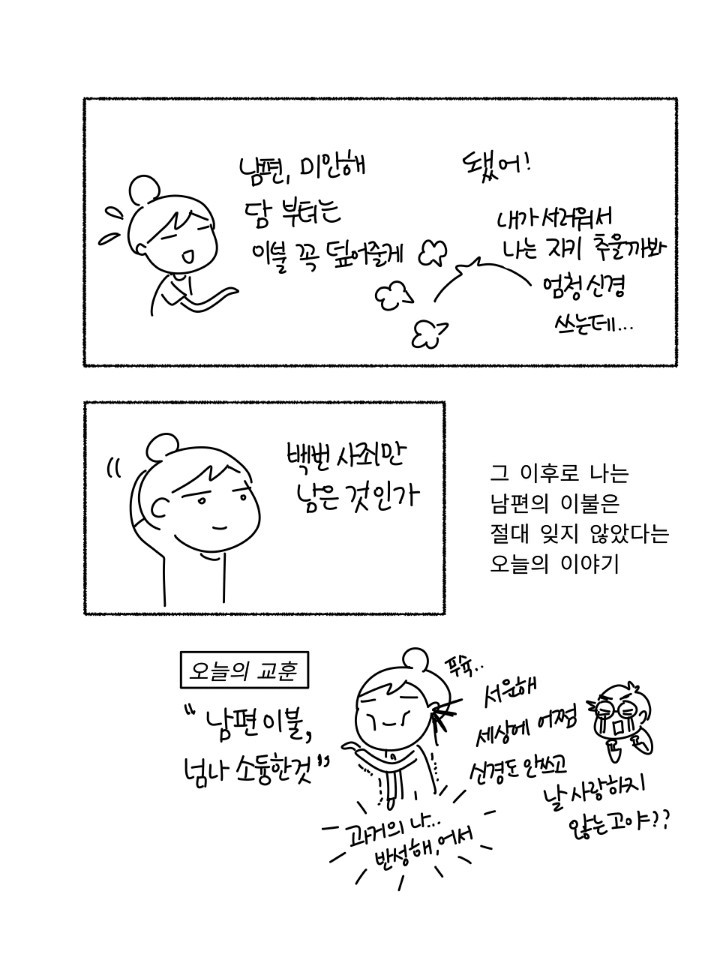 남편, 미안해
담 부터는
이불 꼭 덮어줄게
됐어!
내가 서러워서
나는 자기 추울까봐
엄청 신경
쓰는데...
백번 사죄만
남은 것인가
그 이후로 나는
남편의 이불은
절대 잊지 않았다는
오늘의 이야기
오늘의 교훈
“남편 이불,
넘나 소듕한것”
푸슉..
서운해
세상에 어쩜
신경도 안쓰고
날 사랑하지
않는고야??
과거의 나...
반성해, 어서